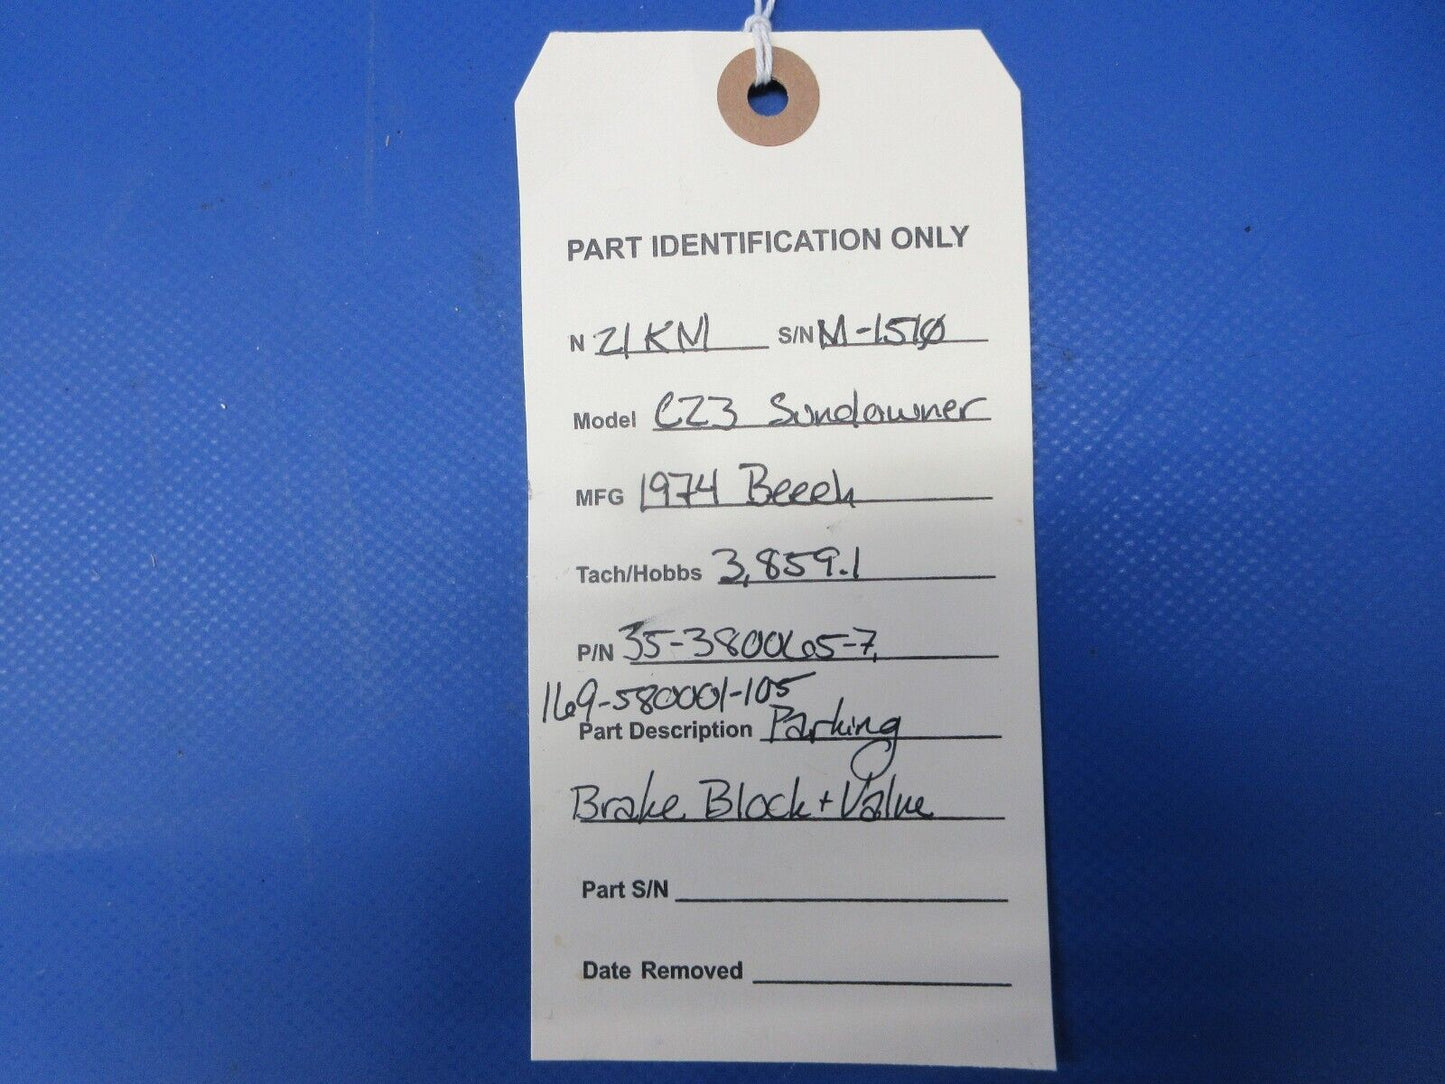 PART IDENTIFICATION ONLY
N 21KM S/N M-1510
Model C23 Sundowner
MFG 1974 Beech
Tach/Hobbs 3,859.1
P/N 35-380065-7,
169-580001-105
Part Description Parking
Brake Block + Valve
Part S/N
Date Removed